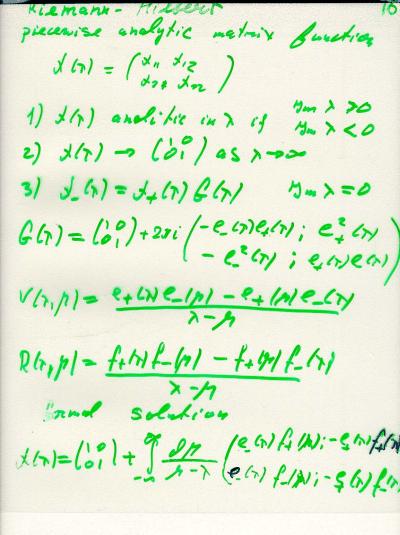 Riemann-Hilbert 16
piecewise analytic matrix function
χ(λ) = (χ₁₁ χ₁₂
χ₂₁ χ₂₂)
1) χ(λ) analitic in λ if Im λ > 0
Im λ < 0
2) χ(λ) → (1 0
0 1) as λ→∞
3) χ₋(λ) = χ₊(λ) G(λ) Im λ = 0
G(λ) = (1 0
0 1) + 2πi (-e₋(λ)e₊(λ); e₊²(λ)
- e₋²(λ); e₊(λ)e(λ))
V(λ,μ) = e₊(λ)e₋(μ) - e₊(μ)e₋(λ)
λ-μ
R(λ,μ) = f₊(λ)f₋(μ) - f₊(μ)f₋(λ)
λ-μ
solution
χ(λ) = (1 0
0 1) + ∫ dμ
μ-λ (e₋(λ) f₊(μ); -e₊(λ) f₊(λ)
e₋(λ) f₋(μ); -e₊(λ) f₋(λ)